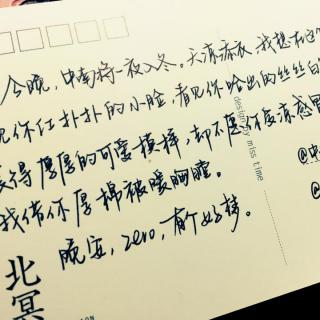 今晚,中南将一夜入冬。天凉添衣,我想在这
见你红扑扑的小脸,看见你哈出的丝丝白
裹得厚厚的可爱模样,却不愿你受凉感冒
我借你厚棉被暖胸膛。
晚安,zero,有个好梦。
@中
@
design by miss time
北冥